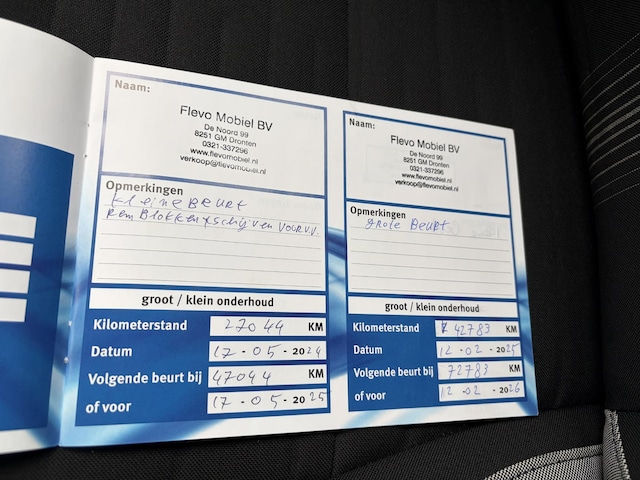 Naam:
Flevo Mobiel BV
De Noord 99
8251 GM Dronten
0321-337296
verkoop@flevomobiel.nl
Opmerkingen
kleine Beurt
RemBlokken + schijven voor v.v.
groot / klein onderhoud
Kilometerstand 27044 KM
Datum 17 - 05 - 2024
Volgende beurt bij 47044 KM
of voor 17 - 05 - 2025
Naam:
Flevo Mobiel BV
De Noord 99
8251 GM Dronten
0321-337296
www.flevomobiel.nl
verkoop@flevomobiel.nl
Opmerkingen
grote Beurt
groot / klein onderhoud
Kilometerstand 42783 KM
Datum 12 - 02 - 2025
Volgende beurt bij 72783 KM
of voor 12 - 02 - 2026